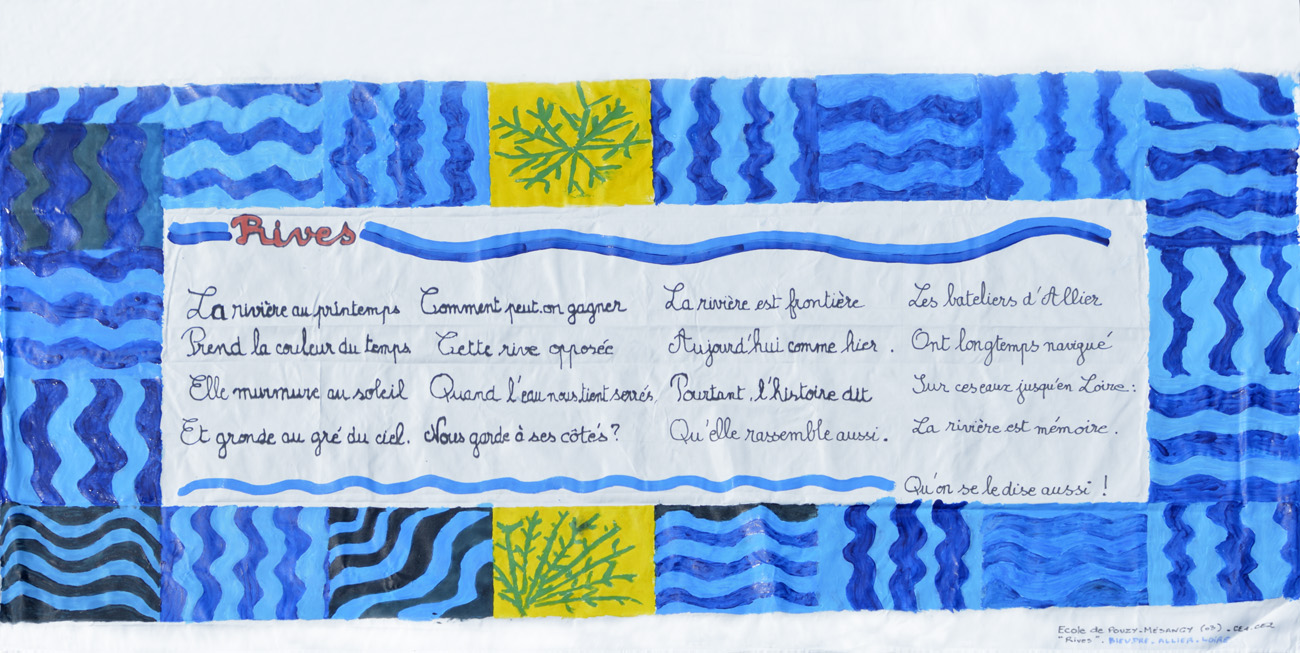 Rives
La rivière au printemps
Prend la couleur du temps
Elle murmure au soleil
Et gronde au gré du ciel.
Comment peut.on gagner
Cette rive opposée
Quand l'eau nous tient serrés,
Nous garde à ses côtés?
La rivière est frontière
Aujourd'hui comme hier.
Pourtant, l'histoire dit
Qu'elle rassemble aussi.
Les bateliers d'Allier
Ont longtemps navigué
Sur ces eaux jusqu'en Loire:
La rivière est mémoire.
Qu'on se le dise aussi!
Ecole de POUZY-MÉSANGY (03) - CE1.CE2
"Rives". BIEUDRE. ALLIER. LOIRE